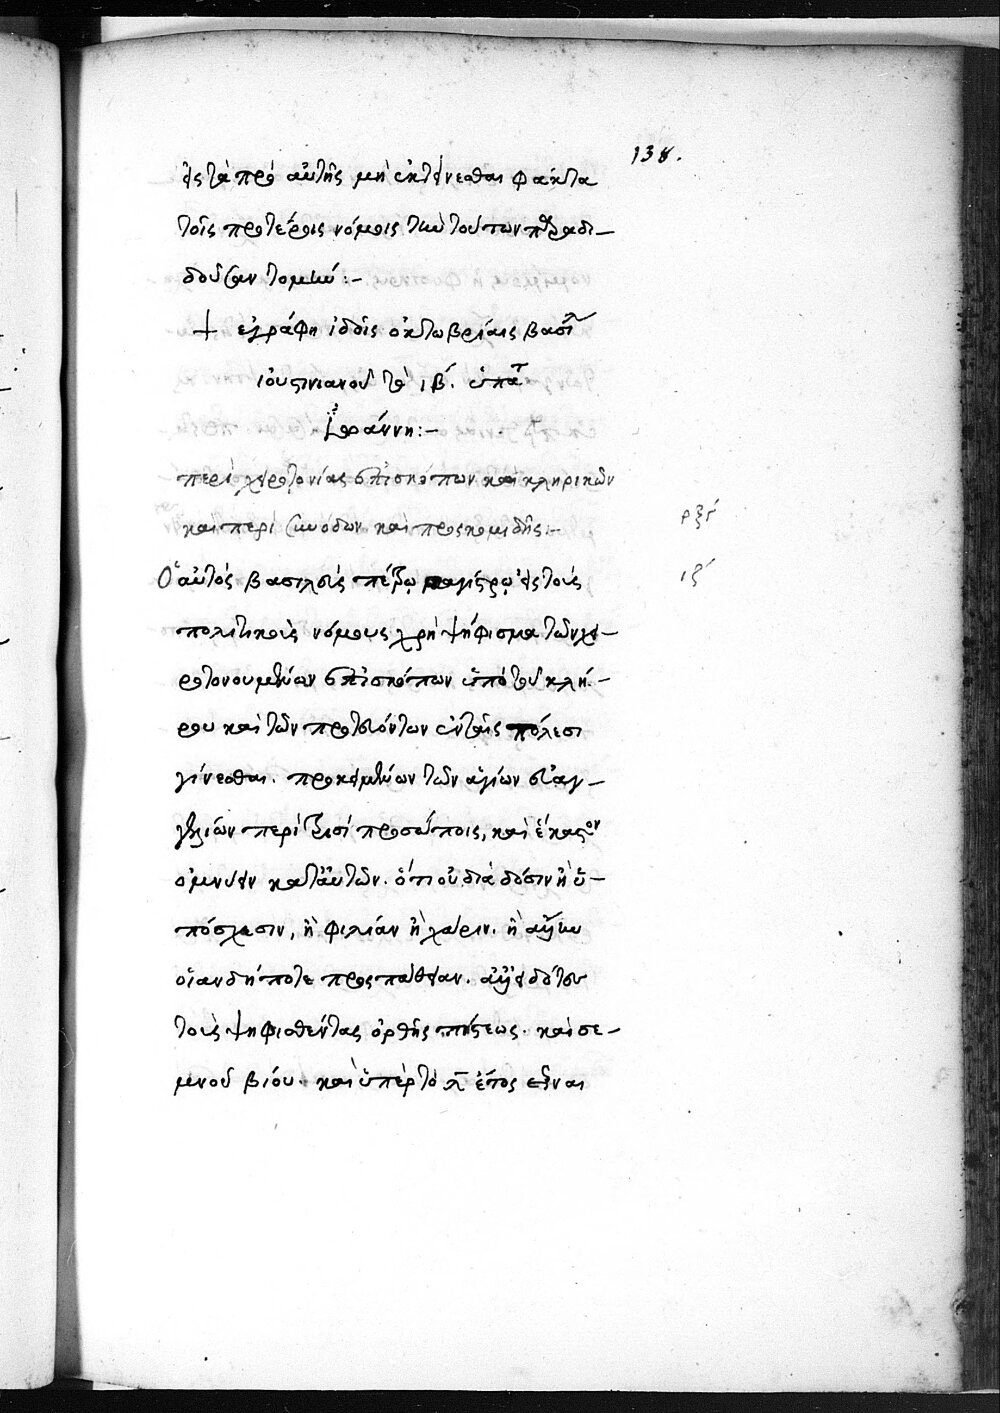 138.
εἰς τὰ πρὸ αὐτῆς μὴ ἐκτείνεσθαι φάκτα
τοῖς προτέροις νόμοις τὴν τούτων παραδι-
δοῦσαν τομήν :-
+ ἐγράφη ἰδοῖς ὀκτωβρίαις βασι
ἰουστινιανοῦ τὸ ιβ. ὑπα
Ἰωάννη :-
περὶ χειροτονίας ἐπισκόπων καὶ κληρικῶν
καὶ περὶ συνόδων καὶ προσκομιδῆς :-
ρξγ
Ὁ αὐτὸς βασιλεὺς πέτρω μαγίστρω εἰς τοὺς
ιξ
πολιτικοὺς νόμους χρὴ ψήφισμα τῶν χει-
ροτονουμένων ἐπισκόπων ὑπὸ τοῦ κλή-
ρου καὶ τῶν πρωτευόντων ἐν ταῖς πόλεσι
γίνεσθαι. προκειμένων τῶν ἁγίων εὐαγ-
γελίων περὶ τρισὶ προσώποις, καὶ ἕκαστον
ὀμνύειν κατ' αὐτῶν. ὅτι οὐ διὰ δόσιν ἢ ὑ-
πόσχεσιν, ἢ φιλίαν ἢ χάριν. ἢ ἄλλην
οἵαν δήποτε προσπάθειαν. ἀλλ' εἰδότες
τοὺς ψηφισθέντας ὀρθῆς πίστεως. καὶ σε-
μνοῦ βίου. καὶ ὑπὲρ τὸ λ ἔτος εἶναι